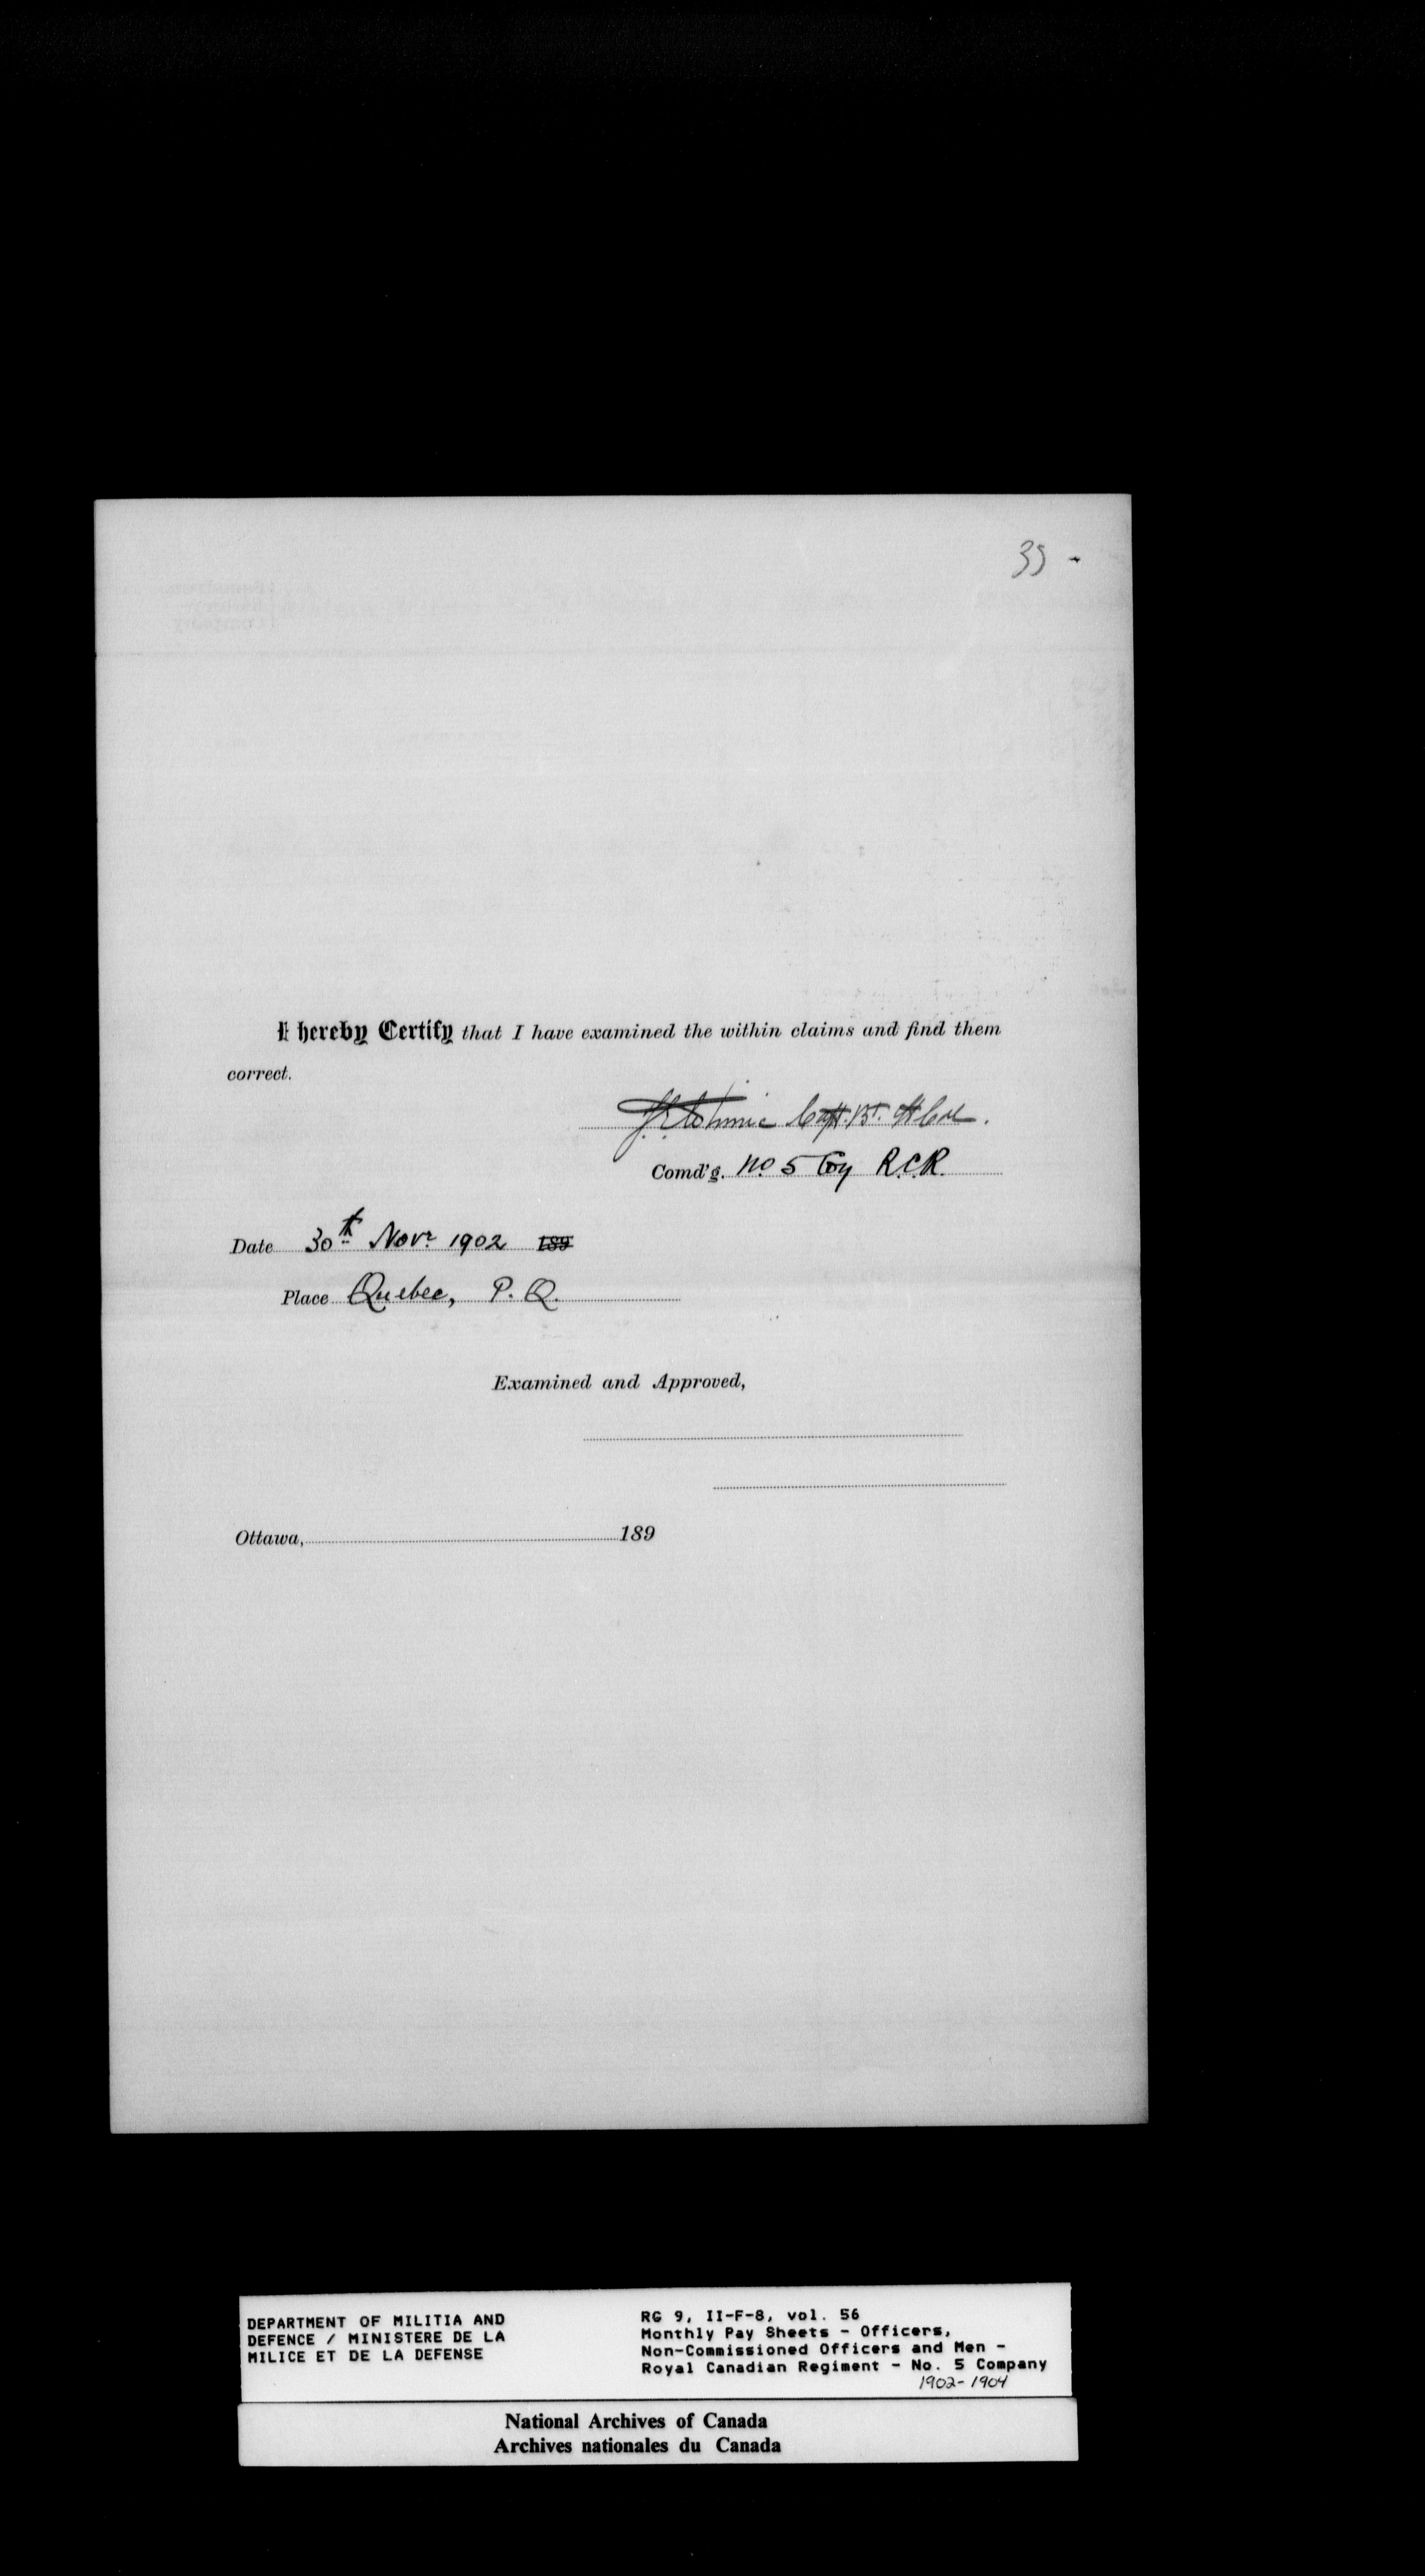 35 -
I hereby Certify that I have examined the within claims and find them
correct.
Capt. Bt. Lt Col.
Comd'g. No 5 Coy R.C.R.
Date 30th Novr 1902 189
Place Quebec, P. Q.
Examined and Approved,
Ottawa, 189
DEPARTMENT OF MILITIA AND
DEFENCE / MINISTERE DE LA
MILICE ET DE LA DEFENSE
RG 9, II-F-8, vol. 56
Monthly Pay Sheets - Officers,
Non-Commissioned Officers and Men -
Royal Canadian Regiment - No. 5 Company
1902-1904
National Archives of Canada
Archives nationales du Canada